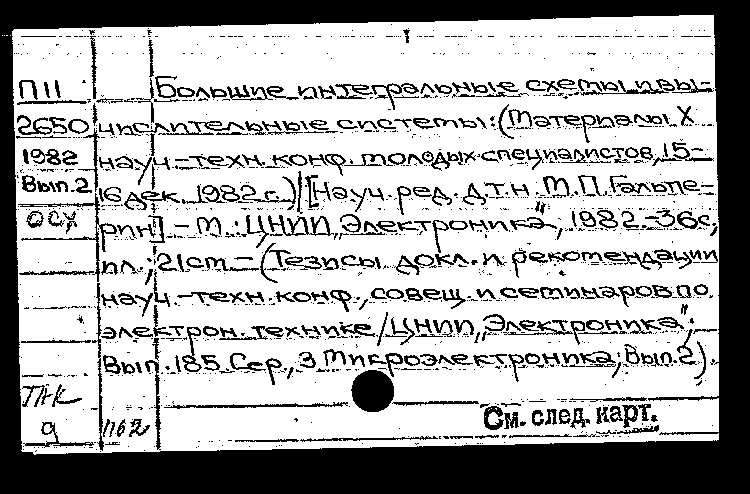 П 11 Большие интегральные схемы и вы-
2650 числительные системы: (Материалы X
1982 науч.-техн. конф. молодых специалистов, 15-
Вып.2 16 дек. 1982 г.) / [Науч. ред. д.т.н. М.П. Гальпе-
ОСХ рин] - М.: ЦНИИ „Электроника", 1982. - 36 с,
ил.; 21 cm. - (Тезисы докл. и рекомендации
науч.-техн. конф., совещ. и семинаров по
электрон. технике / ЦНИИ „Электроника";
Вып. 185. Сер, 3 Микроэлектроника, Вып. 2).
9
См. след. карт.